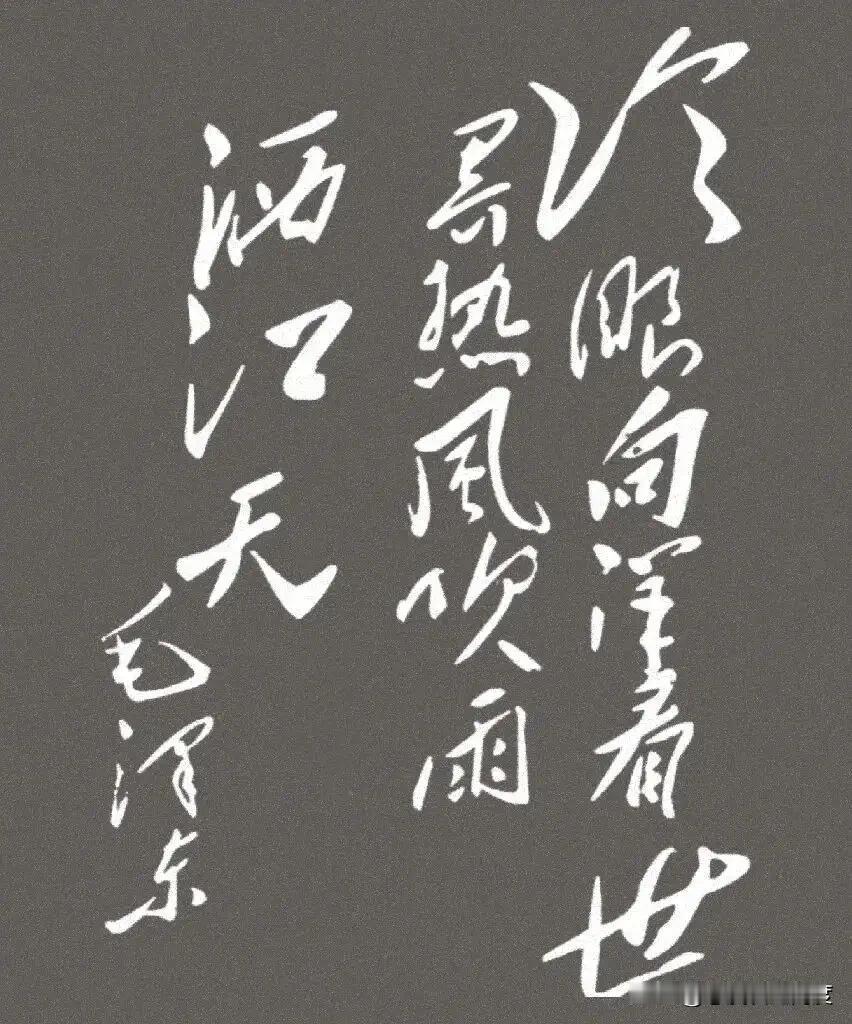 冷眼向洋看世
界热风吹雨
洒江天
毛泽东